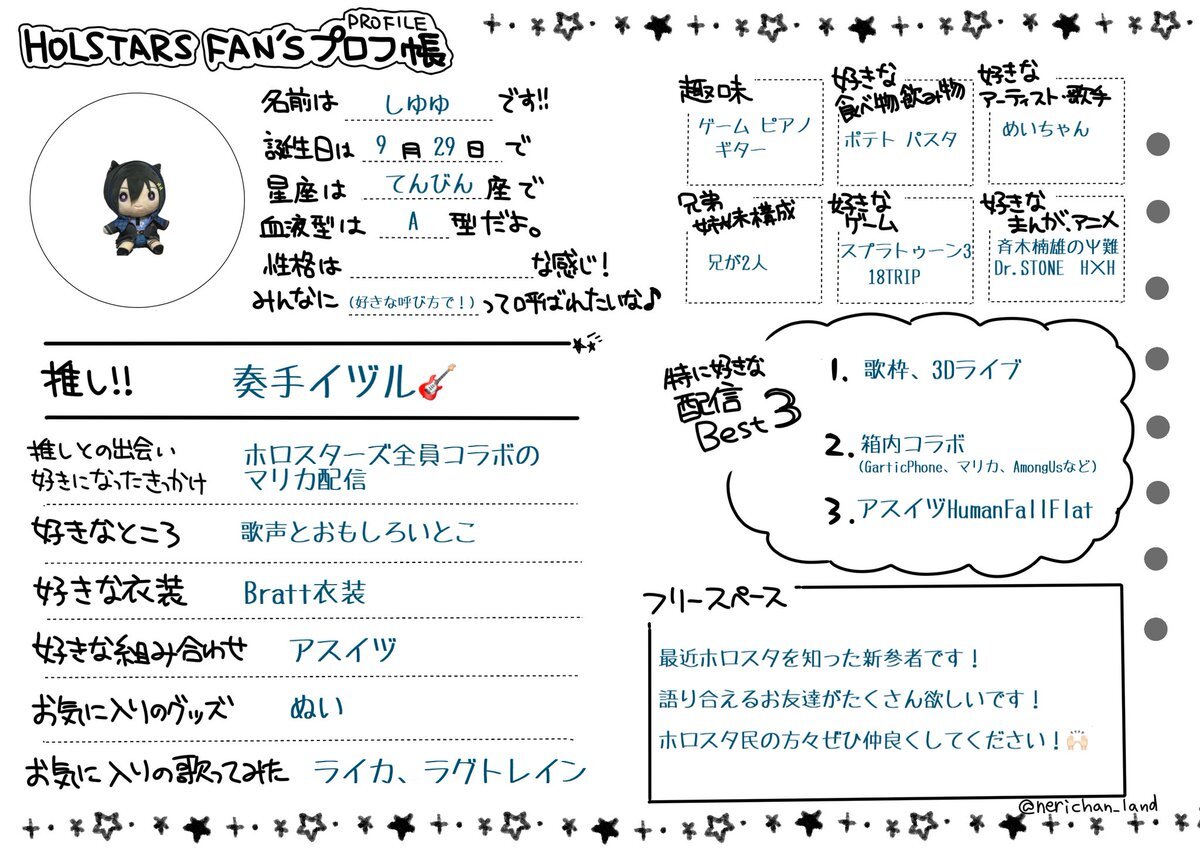 PROFILE
HOLSTARS FAN'Sプロフ帳
名前は しゆゆ です!!
誕生日は 9 月 29 日 で
星座は てんびん 座で
血液型は A 型だよ。
性格は な感じ!
みんなに (好きな呼び方で!) って呼ばれたいな♪
趣味
ゲーム ピアノ
ギター
好きな
食べ物飲み物
ポテト パスタ
好きな
アーティスト・歌手
めいちゃん
兄弟
姉妹構成
兄が2人
好きな
ゲーム
スプラトゥーン3
18TRIP
好きな
まんが、アニメ
斉木楠雄のΨ難
Dr.STONE H×H
推し!! 奏手イヅル🎸
推しとの出会い
好きになったきっかけ
ホロスターズ全員コラボの
マリカ配信
好きなところ 歌声とおもしろいとこ
好きな衣装 Bratt衣装
好きな組み合わせ アスイヅ
お気に入りのグッズ ぬい
お気に入りの歌ってみた ライカ、ラグトレイン
特に好きな
配信
Best3
1. 歌枠、3Dライブ
2. 箱内コラボ
(GarticPhone、マリカ、AmongUsなど)
3. アスイヅHumanFallFlat
フリースペース
最近ホロスタを知った新参者です!
語り合えるお友達がたくさん欲しいです!
ホロスタ民の方々ぜひ仲良くしてください!🙌🏻
@nerichan_land